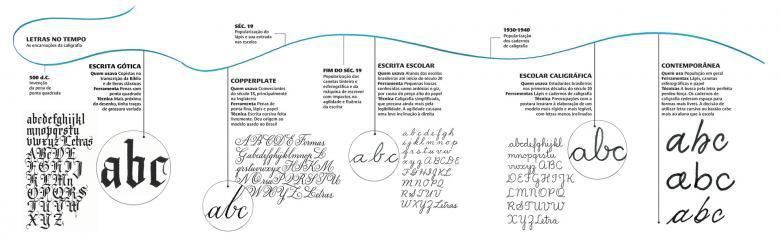 LETRAS NO TEMPO
As encarnações da caligrafia
500 d.C.
Invenção
da pena de
ponta quadrada
ESCRITA GÓTICA
Quem usava Copistas na
transcrição da Bíblia
e de livros clássicos
Ferramenta Penas com
ponta quadrada
Técnica Mais próxima
do desenho, tinha traços
de grossura variada
abcdefghijkl
mnopqrstu
vwxyz Letras
abc
SÉC. 19
Popularização do
lápis e sua entrada
nas escolas
COPPERPLATE
Quem usava Comerciantes
do século 17, principalmente
na Inglaterra
Ferramenta Penas de
ponta fina, lápis e papel
Técnica Escrita cursiva feita
livremente. Deu origem ao
modelo usado no Brasil
abc
FIM DO SÉC. 19
Popularização das
canetas tinteiro e
esferográfica e da
máquina de escrever
com impactos na
agilidade e fluência
da escrita
ESCRITA ESCOLAR
Quem usava Alunos das escolas
brasileiras até início do século 20
Ferramenta Poucas lousas
conhecidas como ardósias e giz,
por causa do preço alto do papel
Técnica Caligrafia simplificada,
que prezava ainda mais pela
legibilidade. A agilidade causava
um traço inclinado à direita
abc
abcdefgh
ijklmnop
qrstuvw
xyz ABCDE
FGHIJKL
MNOPQ
RSTUV
WXYZ Letras
1930-1940
Popularização
dos cadernos
de caligrafia
ESCOLAR CALIGRÁFICA
Quem usava Estudantes brasileiros
nas primeiras décadas do século 20
Ferramenta Lápis e cadernos de caligrafia
Técnica Preocupações com a
postura levaram à elaboração de um
modelo mais rígido e mais legível,
com letras menos inclinadas
abcdefghijkl
mnopqrstu
vwxyz ABC
DEFGHIJK
LMNOPQ
RSTUVW
XYZ Letra
abc
CONTEMPORÂNEA
Quem usa População em geral
Ferramentas Lápis, canetas
esferográficas e papel
Técnicas A busca pela letra perfeita
perdeu força. Os cadernos de
caligrafia cederam espaço para
formas mais livres. A decisão de
utilizar letra cursiva ou bastão cabe
mais ao aluno que à escola
abc
abc
abc